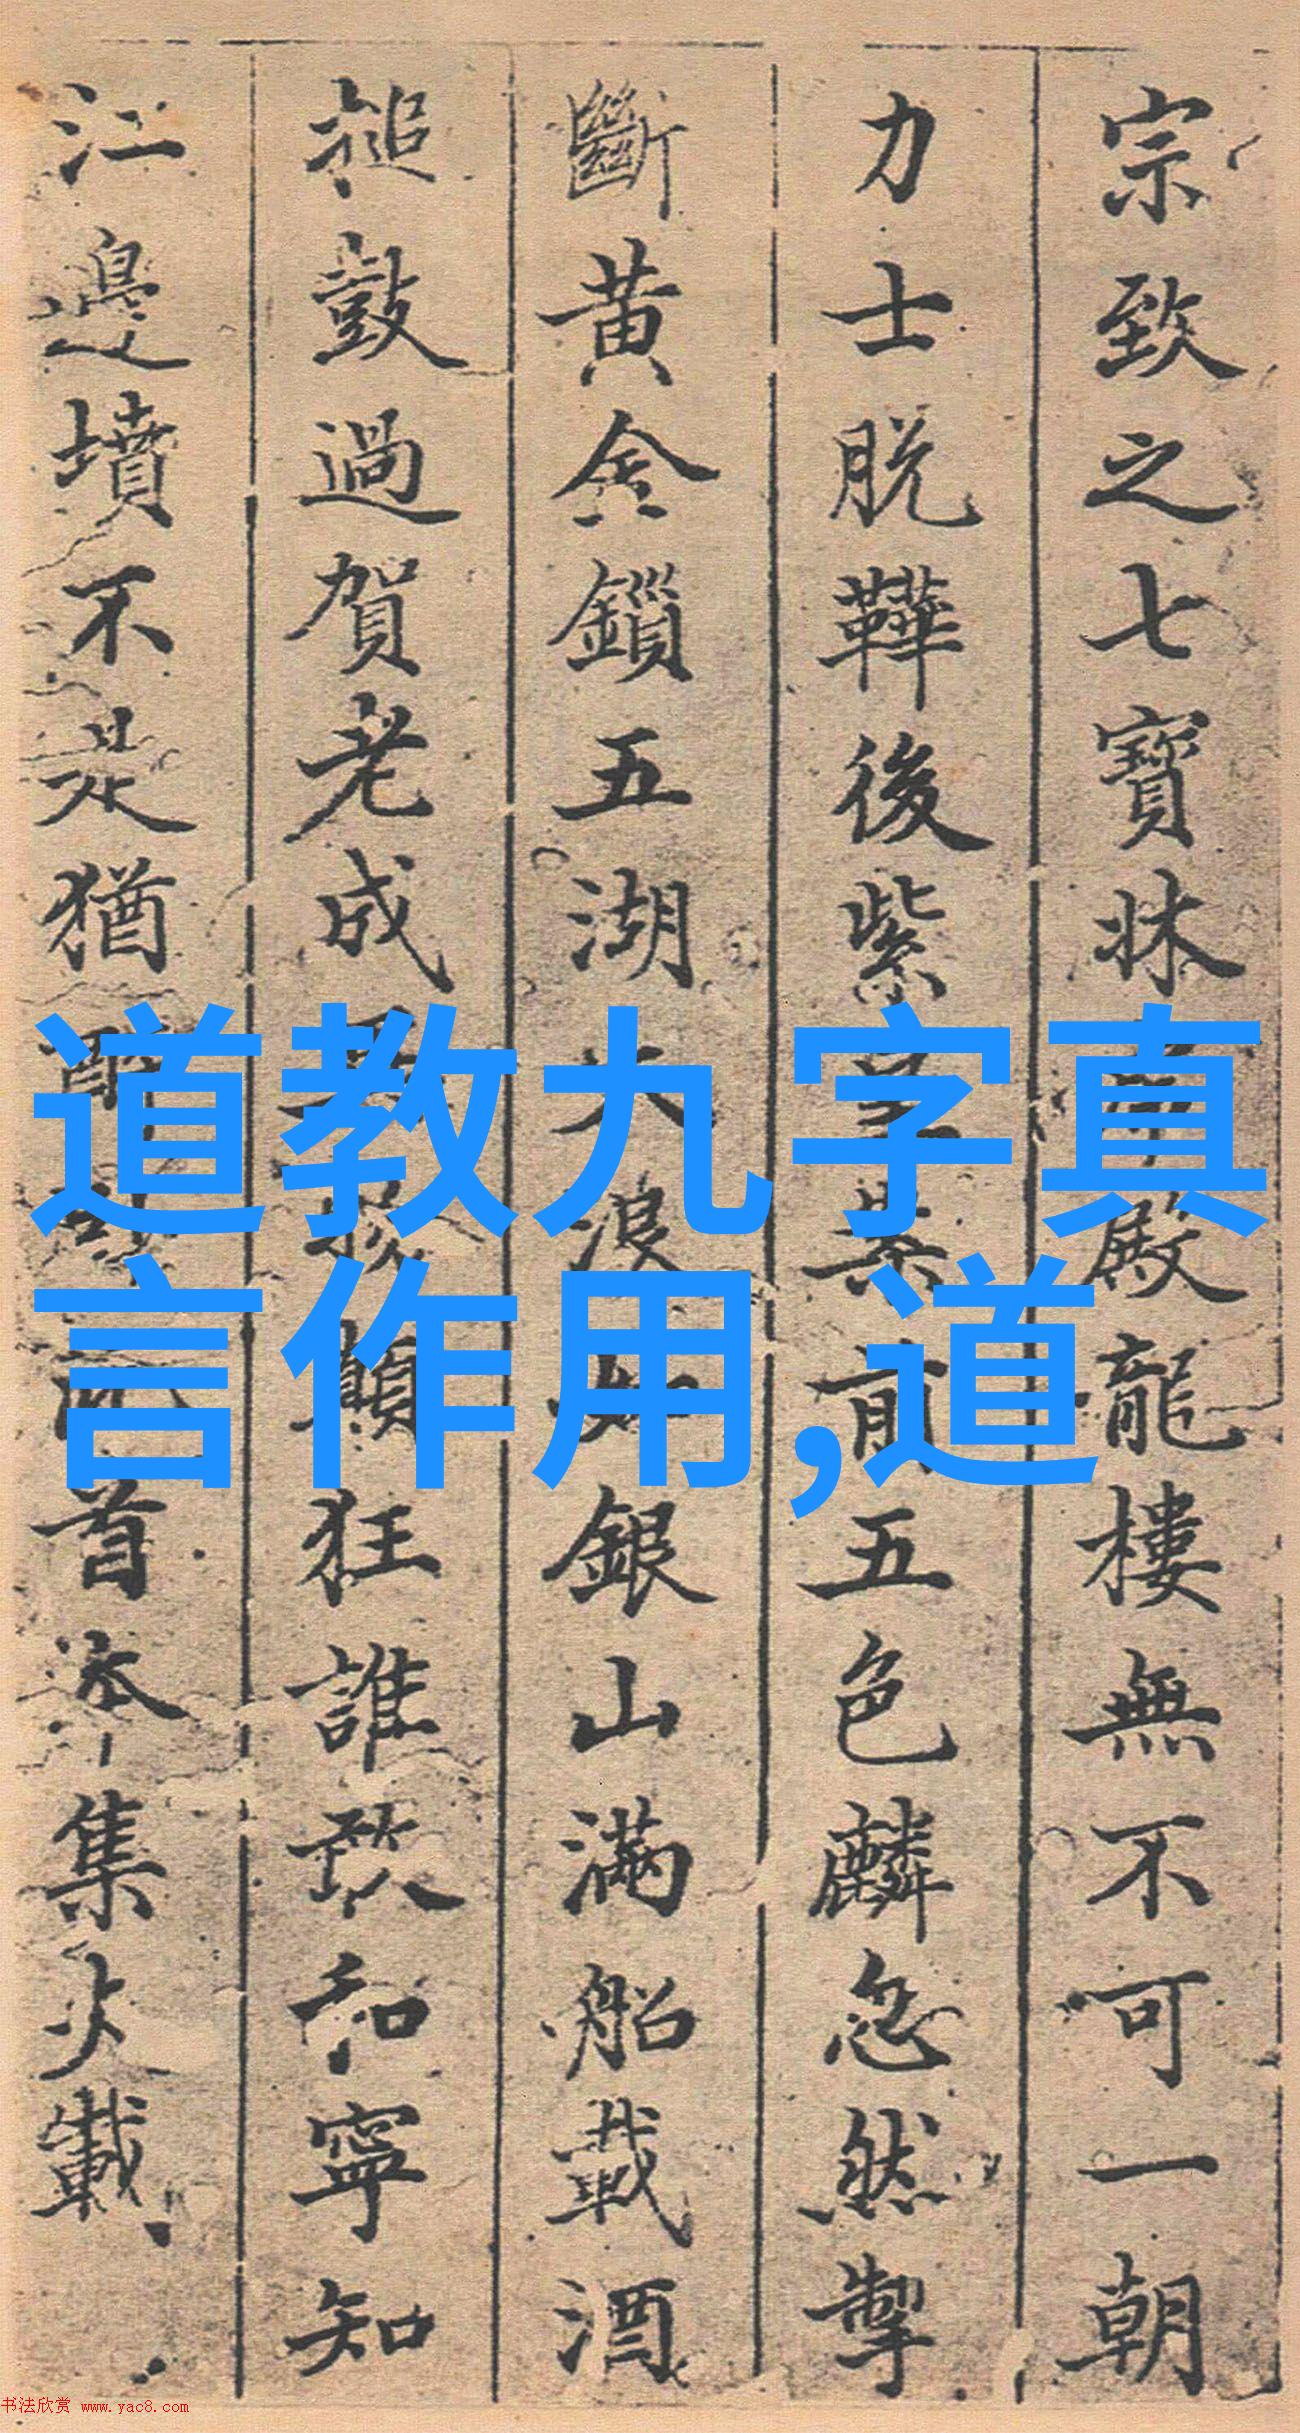 宗致之七寶牀 殿龍樓無不可一朝
力士脱鞾後紫 前五色麟忽然掣
斷黄金鎖五湖大浪如銀山滿船載酒
搥鼓過賀老成 顛狂誰敢和寧知
江邊墳不是猶 首本集少載
道教九字真
言作用,道
书法欣赏 www.yac8.com